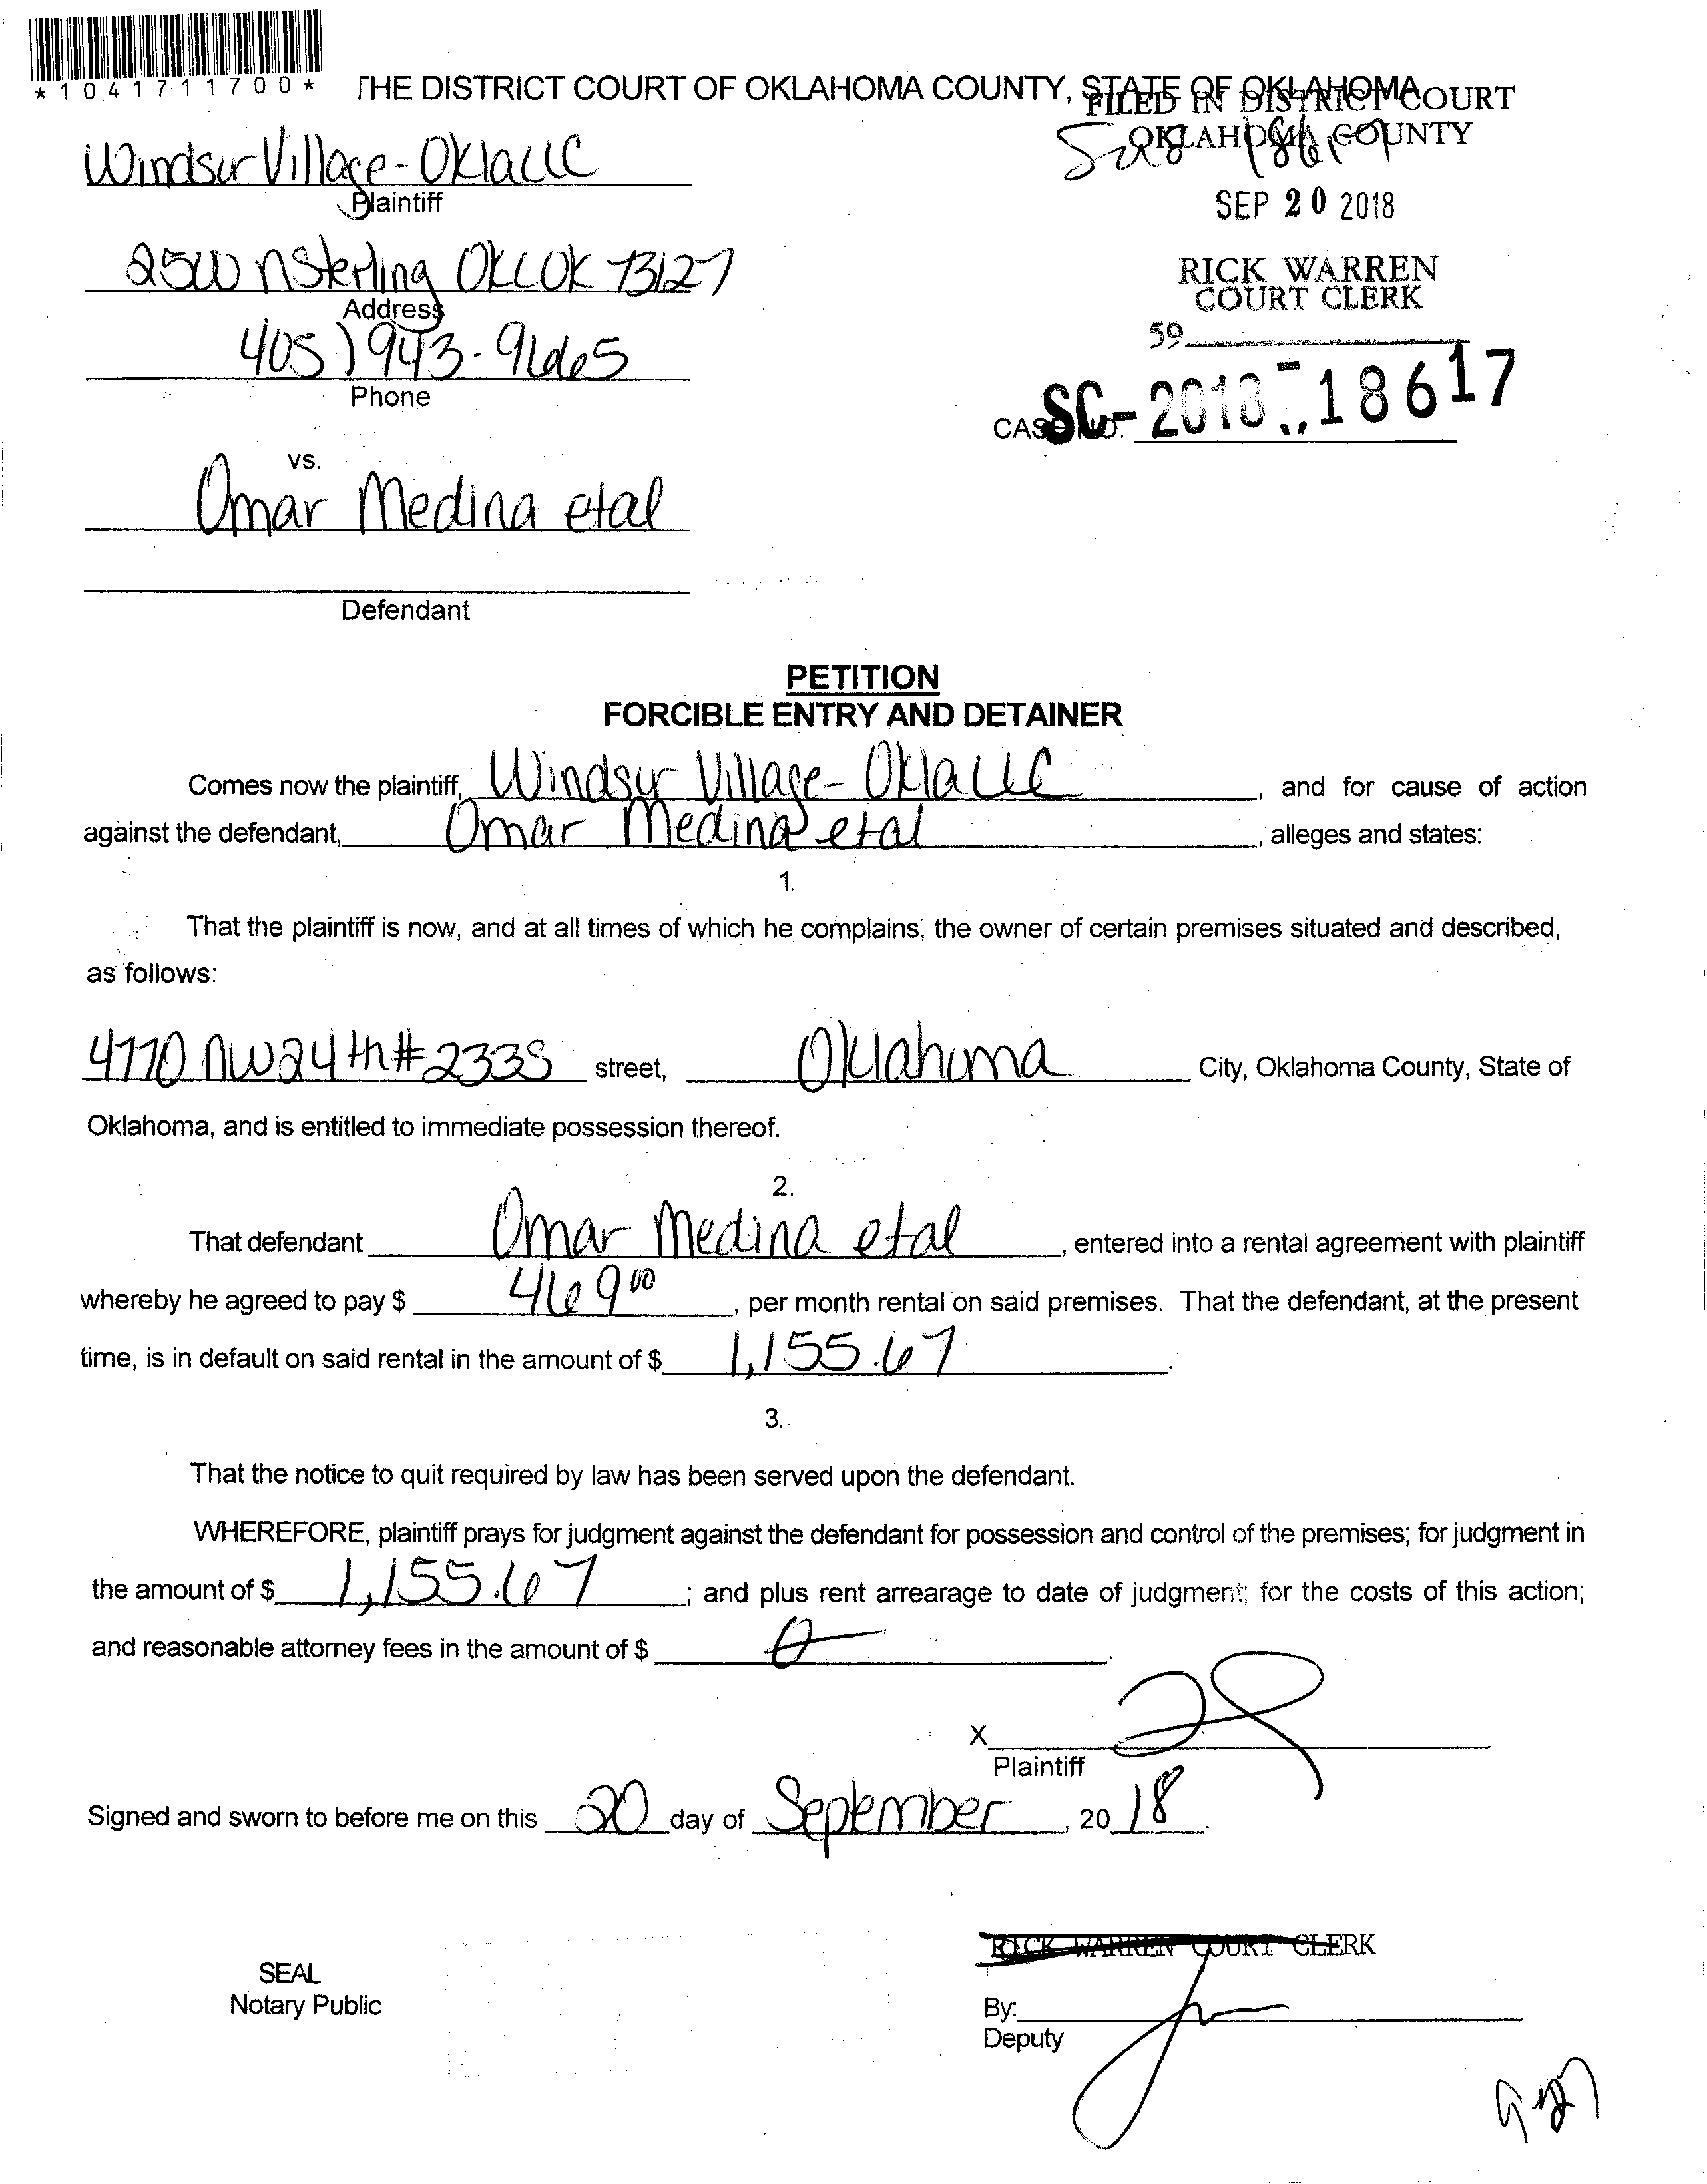 *1041711700*
THE DISTRICT COURT OF OKLAHOMA COUNTY, STATE OF OKLAHOMA
FILED IN DISTRICT COURT
OKLAHOMA COUNTY
SEP 20 2018
RICK WARREN
COURT CLERK
59
CASE NO. SC-2018-18617
Windsor Village-Okla LLC
Plaintiff
2500 N Sterling OKC OK 73127
Address
405) 943-9665
Phone
vs.
Omar Medina etal
Defendant
PETITION
FORCIBLE ENTRY AND DETAINER
Comes now the plaintiff, Windsor Village-Okla LLC, and for cause of action
against the defendant, Omar Medina etal, alleges and states:
1.
That the plaintiff is now, and at all times of which he complains, the owner of certain premises situated and described,
as follows:
4770 NW 24th #233S street, Oklahoma City, Oklahoma County, State of
Oklahoma, and is entitled to immediate possession thereof.
2.
That defendant Omar Medina etal, entered into a rental agreement with plaintiff
whereby he agreed to pay $ 469 00, per month rental on said premises. That the defendant, at the present
time, is in default on said rental in the amount of $ 1,155.67.
3.
That the notice to quit required by law has been served upon the defendant.
WHEREFORE, plaintiff prays for judgment against the defendant for possession and control of the premises; for judgment in
the amount of $ 1,155.67; and plus rent arrearage to date of judgment; for the costs of this action;
and reasonable attorney fees in the amount of $ 0.
X
Plaintiff
Signed and sworn to before me on this 20 day of September, 20 18.
RICK WARREN COURT CLERK
SEAL
Notary Public
By:
Deputy